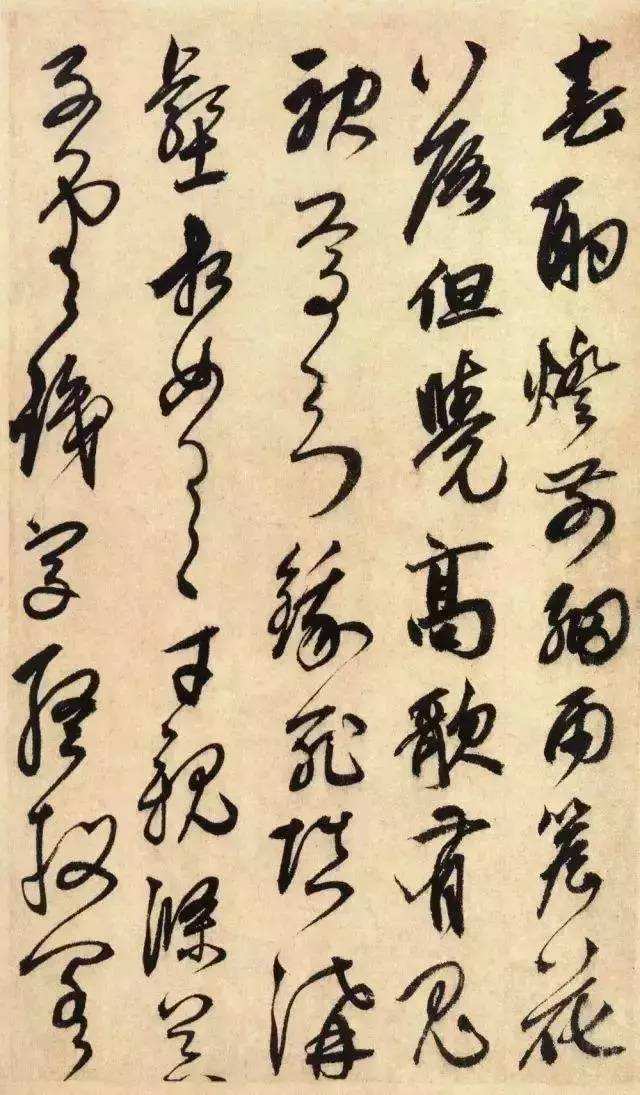 春酌燈前細雨簷花
落但覺高歌有鬼
神焉知餓死填溝
壑相如逸才親滌器
子雲識字終投閣